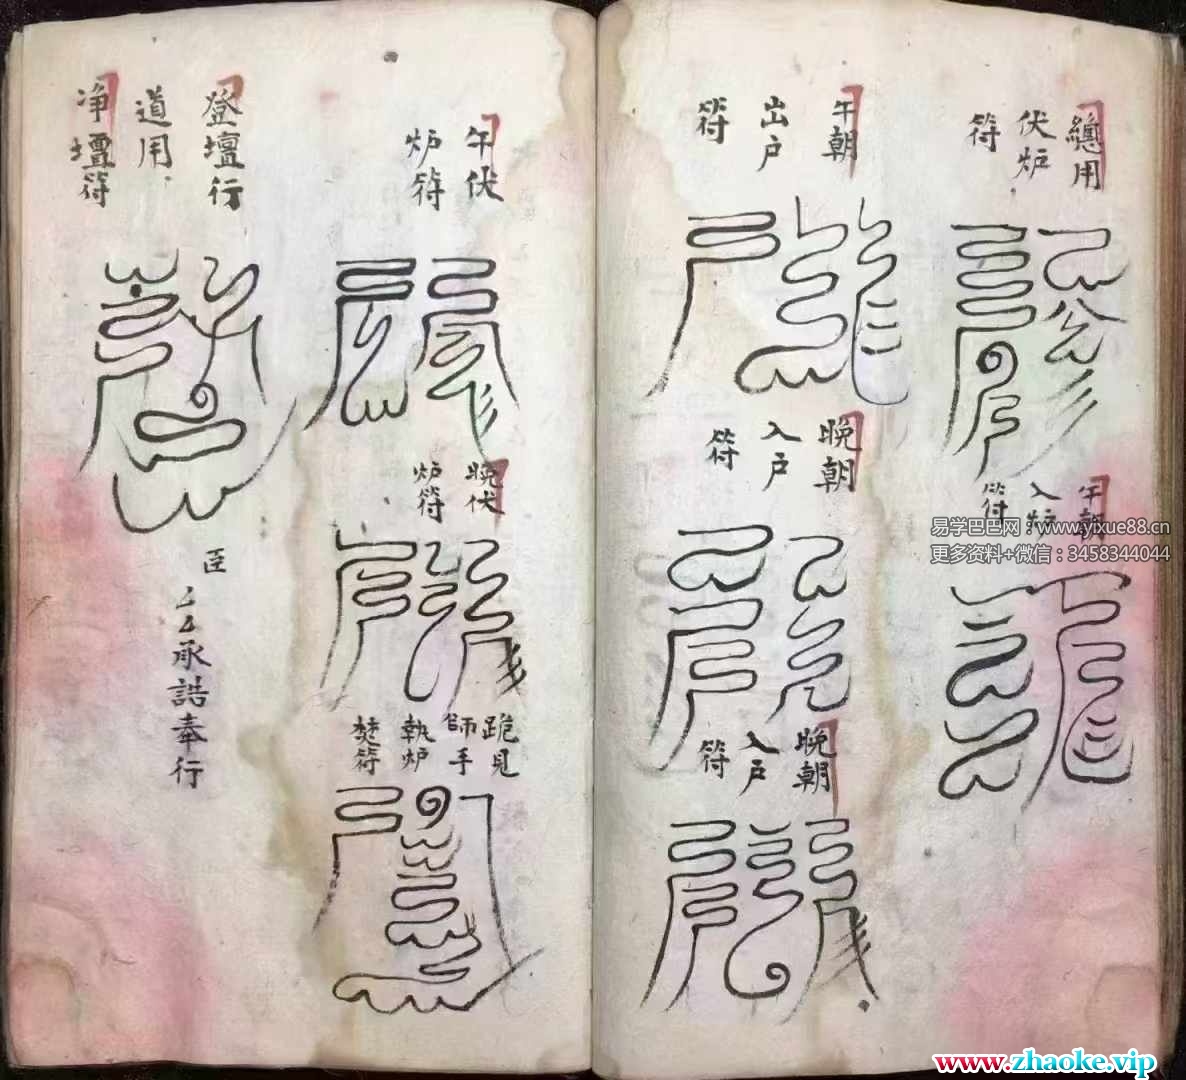 總用
伏炉
符
午朝
入炉
符
午朝
出户
符
晚朝
入户
符
晚朝
入户
符
午伏
炉符
晚伏
炉符
跪見
師手
執炉
焚符
登壇行
道用
净壇符
臣
承誥奉行
易学巴巴网:www.yixue88.cn
更多资料+微信:3458344044
www.zhaoke.vip